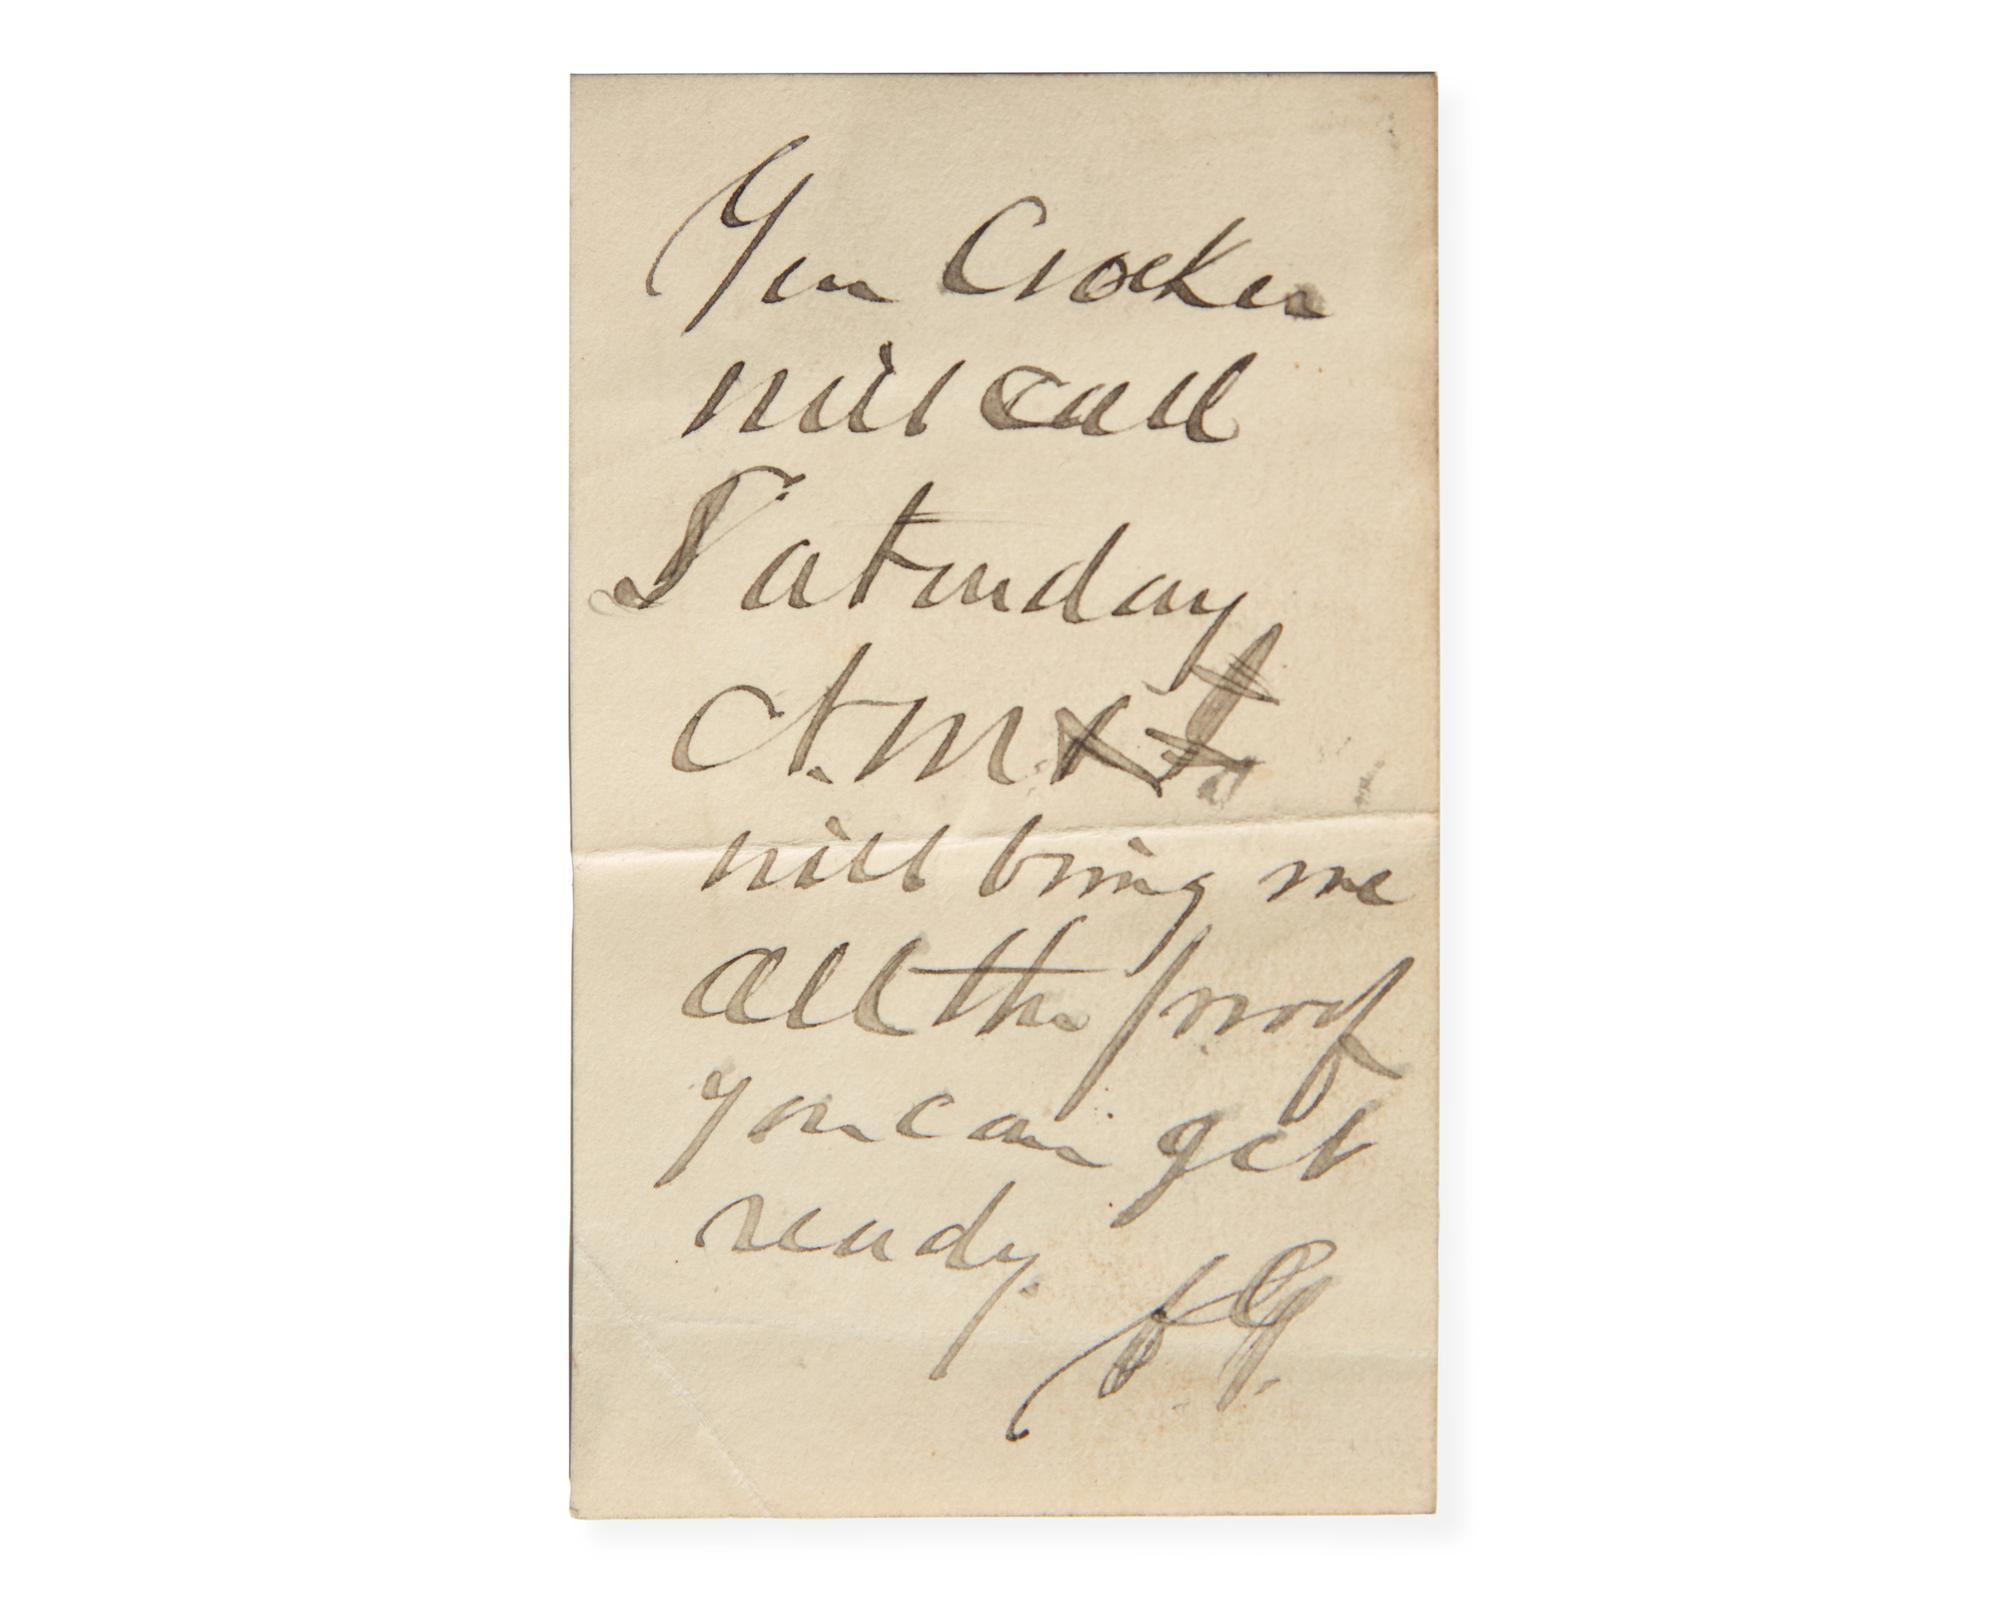 Gen Crocker
will call
Saturday
A.M. &
will bring me
all the proof
you can get
ready.
JG.